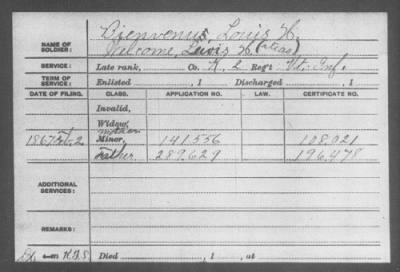 Bienvenue, Louis H.
NAME OF SOLDIER: Welcome, Lewis H. (alias)
SERVICE: Late rank, Co. K, 2 Reg't Vt. Inf.
TERM OF SERVICE: Enlisted , 1 Discharged , 1
DATE OF FILING. CLASS. APPLICATION NO. LAW. CERTIFICATE NO.
Invalid,
Widow,
mother
1867 2 Minor, 141.556 108.021
Father. 289.629 196.478
ADDITIONAL SERVICES:
REMARKS:
Died , 1 , at